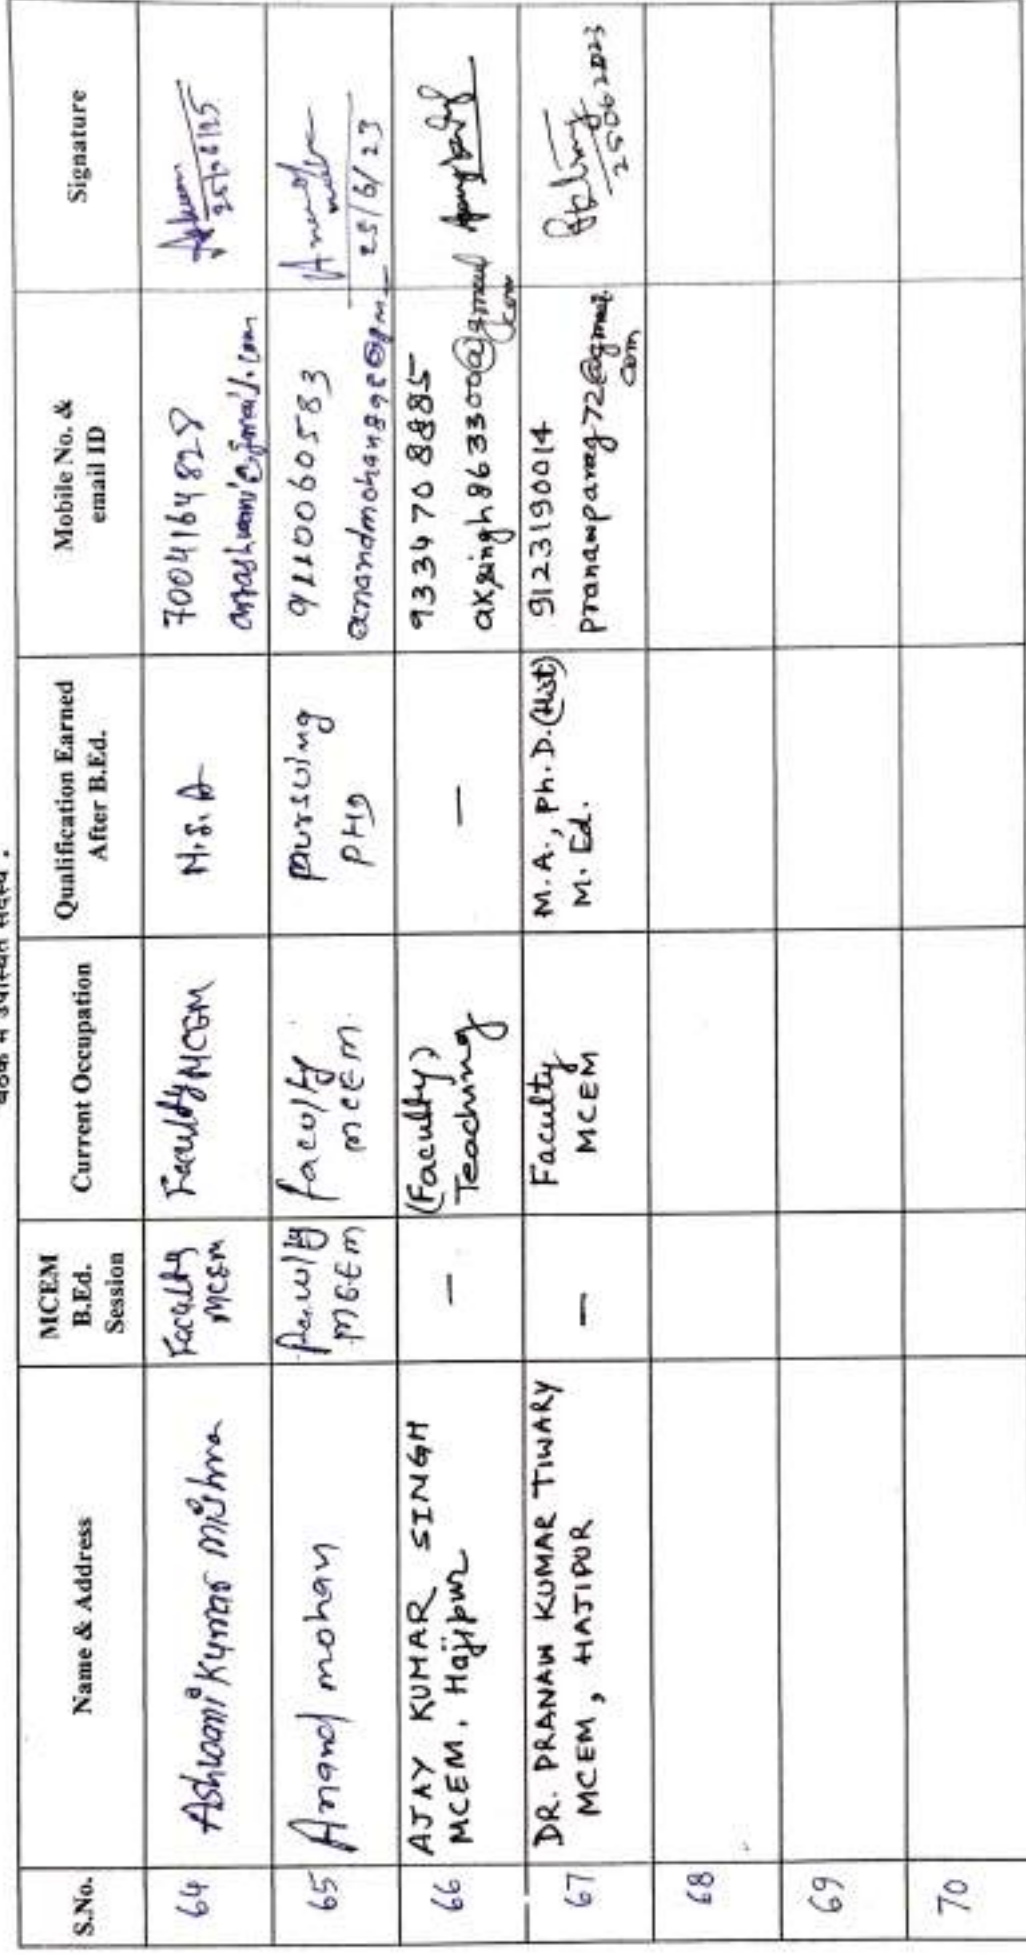 बैठक में उपस्थित सदस्य :
S.No.
Name & Address
MCEM
B.Ed.
Session
Current Occupation
Qualification Earned
After B.Ed.
Mobile No. &
email ID
Signature
64
Ashwani Kumar Mishra
Faculty
MCEM
Faculty MCEM
7004164828
65
Anand mohan
Faculty
MCEM
faculty
MCEM.
pursuing
PHD
9110060583
25/6/23
66
AJAY KUMAR SINGH
MCEM. Hajipur
—
(Faculty)
Teaching
—
9334708885
aksingh863300@gmail
.com
67
DR. PRANAW KUMAR TIWARY
MCEM, HAJIPUR
—
Faculty
MCEM
M.A., Ph.D.(Hist)
M. Ed.
9123190014
pranawparag72@gmail.
com
25062023
68
69
70